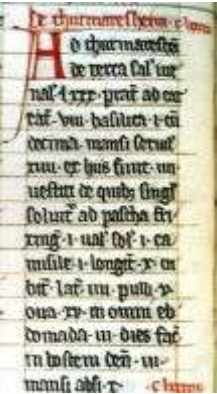 De churmaresheim
Ad churmareshei
de terra sal iur
nal · lxxx · prat ad car
rat · viii · basilica · i · cū
decima · mansi seruil
xiiii · ex his sunt
uestiti de quib; singl
soluit ad pascha fri
xing · i · ual sol · i · ca
misile · i · longit · x · cu
bit · lat · iiii · pull · v
oua · xv · in omni eb
domada · iii · dies fac
in hostem den · iii ·
mansi absi · x ·